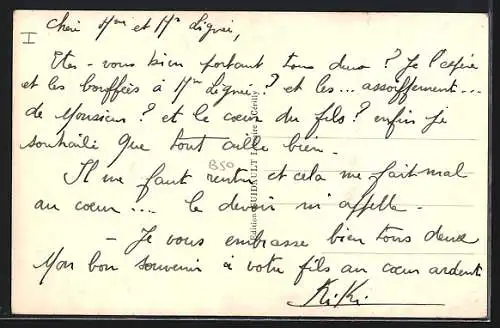 I
Chère Mme et Mr Lignei,
Etes-vous bien portant tous deux? Je l'espère
et les bouffées à Mme Lignei? et les... assoiffement...
de Monsieur? et le cœur du fils? enfin je
souhaite que tout aille bien.
B50
Il me faut rentrer et cela me fait mal
au cœur... le devoir m'appelle -
- Je vous embrasse bien tous deux
Mon bon souvenir à votre fils au cœur ardent
KiKi
Editions GUIDAULT Cérilly